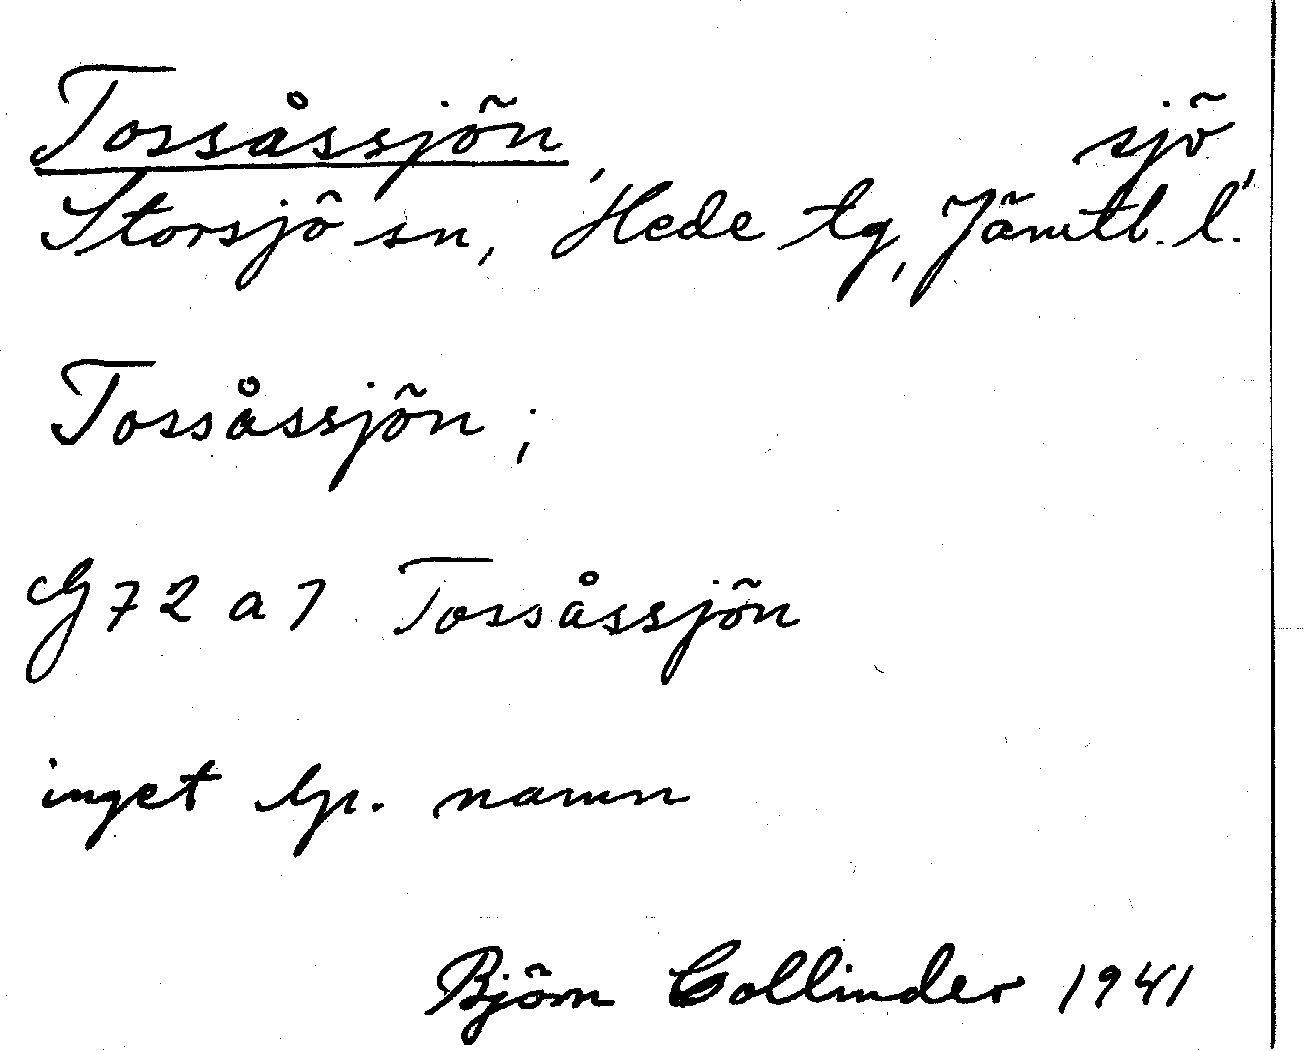 Tossåssjön, sjö,
Storsjö sn, Hede tg, Jämtl. l.
Tossåssjön;
G 72 a 7 Tossåssjön
inget lp. namn
Björn Collinder 1941